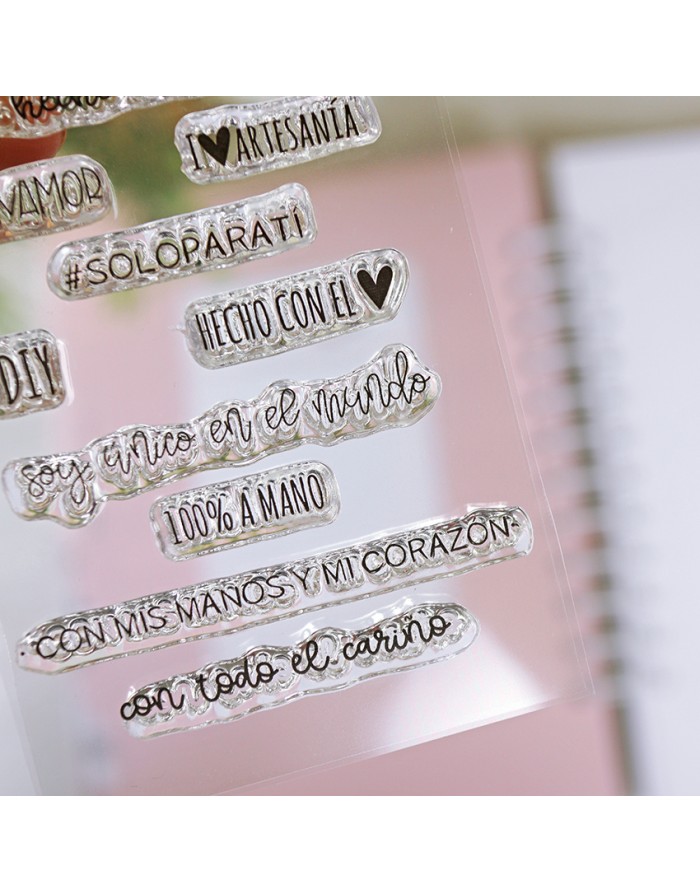 I ♥ ARTESANÍA
#SOLOPARATÍ
HECHO CON EL ♥
DIY
soy único en el mundo
100% A MANO
·CON MIS MANOS Y MI CORAZÓN·
con todo el cariño